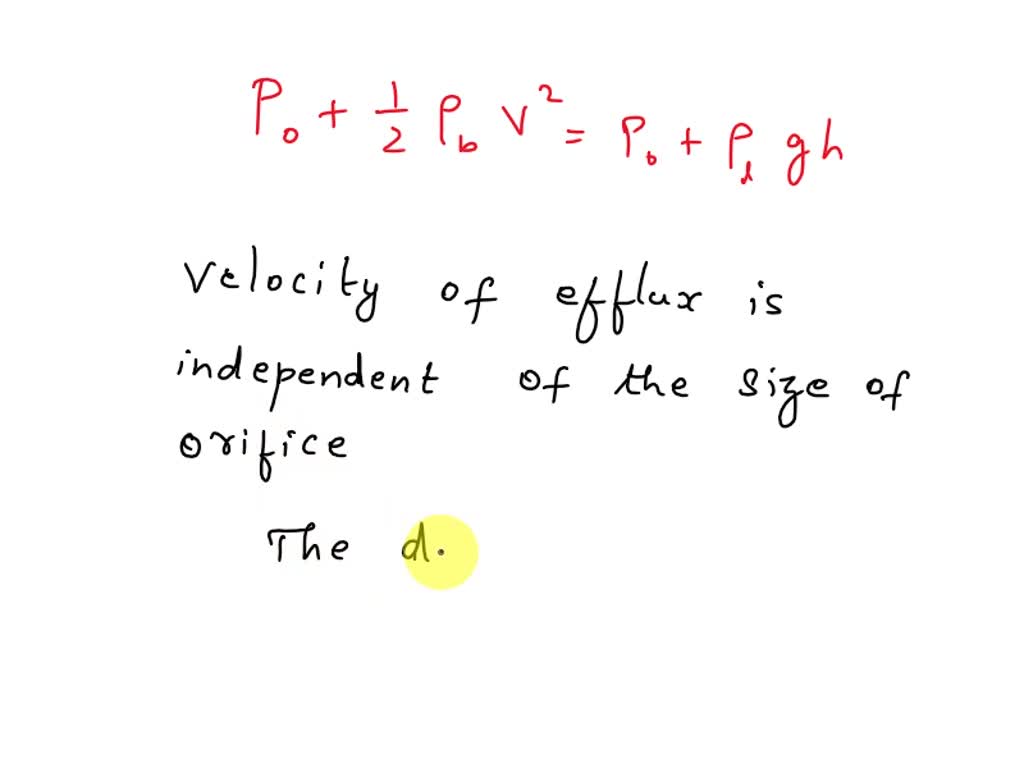 P₀ + 1/2 ρ_b v² = P₀ + ρ_l gh
velocity of efflux is
independent of the size of
orifice
The d.